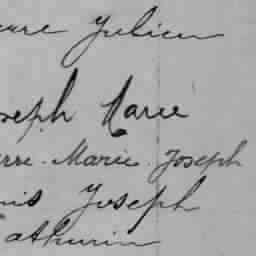 erre Julien
seph Marie
erre-Marie Joseph
uis Joseph
athurin